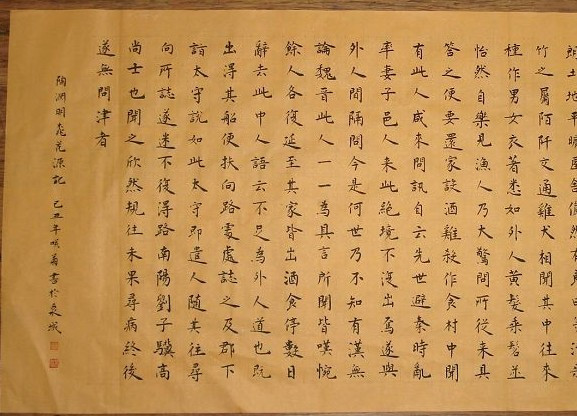 土地平曠屋舍儼然有
竹之屬陌阡交通雞犬相聞其中往來
種作男女衣著悉如外人黃髮垂髫並
怡然自樂見漁人乃大驚問所從來具
答之便要還家設酒雞殺作食村中聞
有此人咸來問訊自云先世避秦時亂
率妻子邑人來此絕境不復出焉遂與
外人間隔問今是何世乃不知有漢無
論魏晉此人一一為具言所聞皆嘆惋
餘人各復延至其家皆出酒食停數日
辭去此中人語云不足為外人道也既
出得其船便扶向路處處誌之及郡下
詣太守說如此太守即遣人隨其往尋
向所誌遂迷不復得路南陽劉子驥高
尚士也聞之欣然規往未果尋病終後
遂無問津者
陶淵明桃花源記 己丑年書於泉城